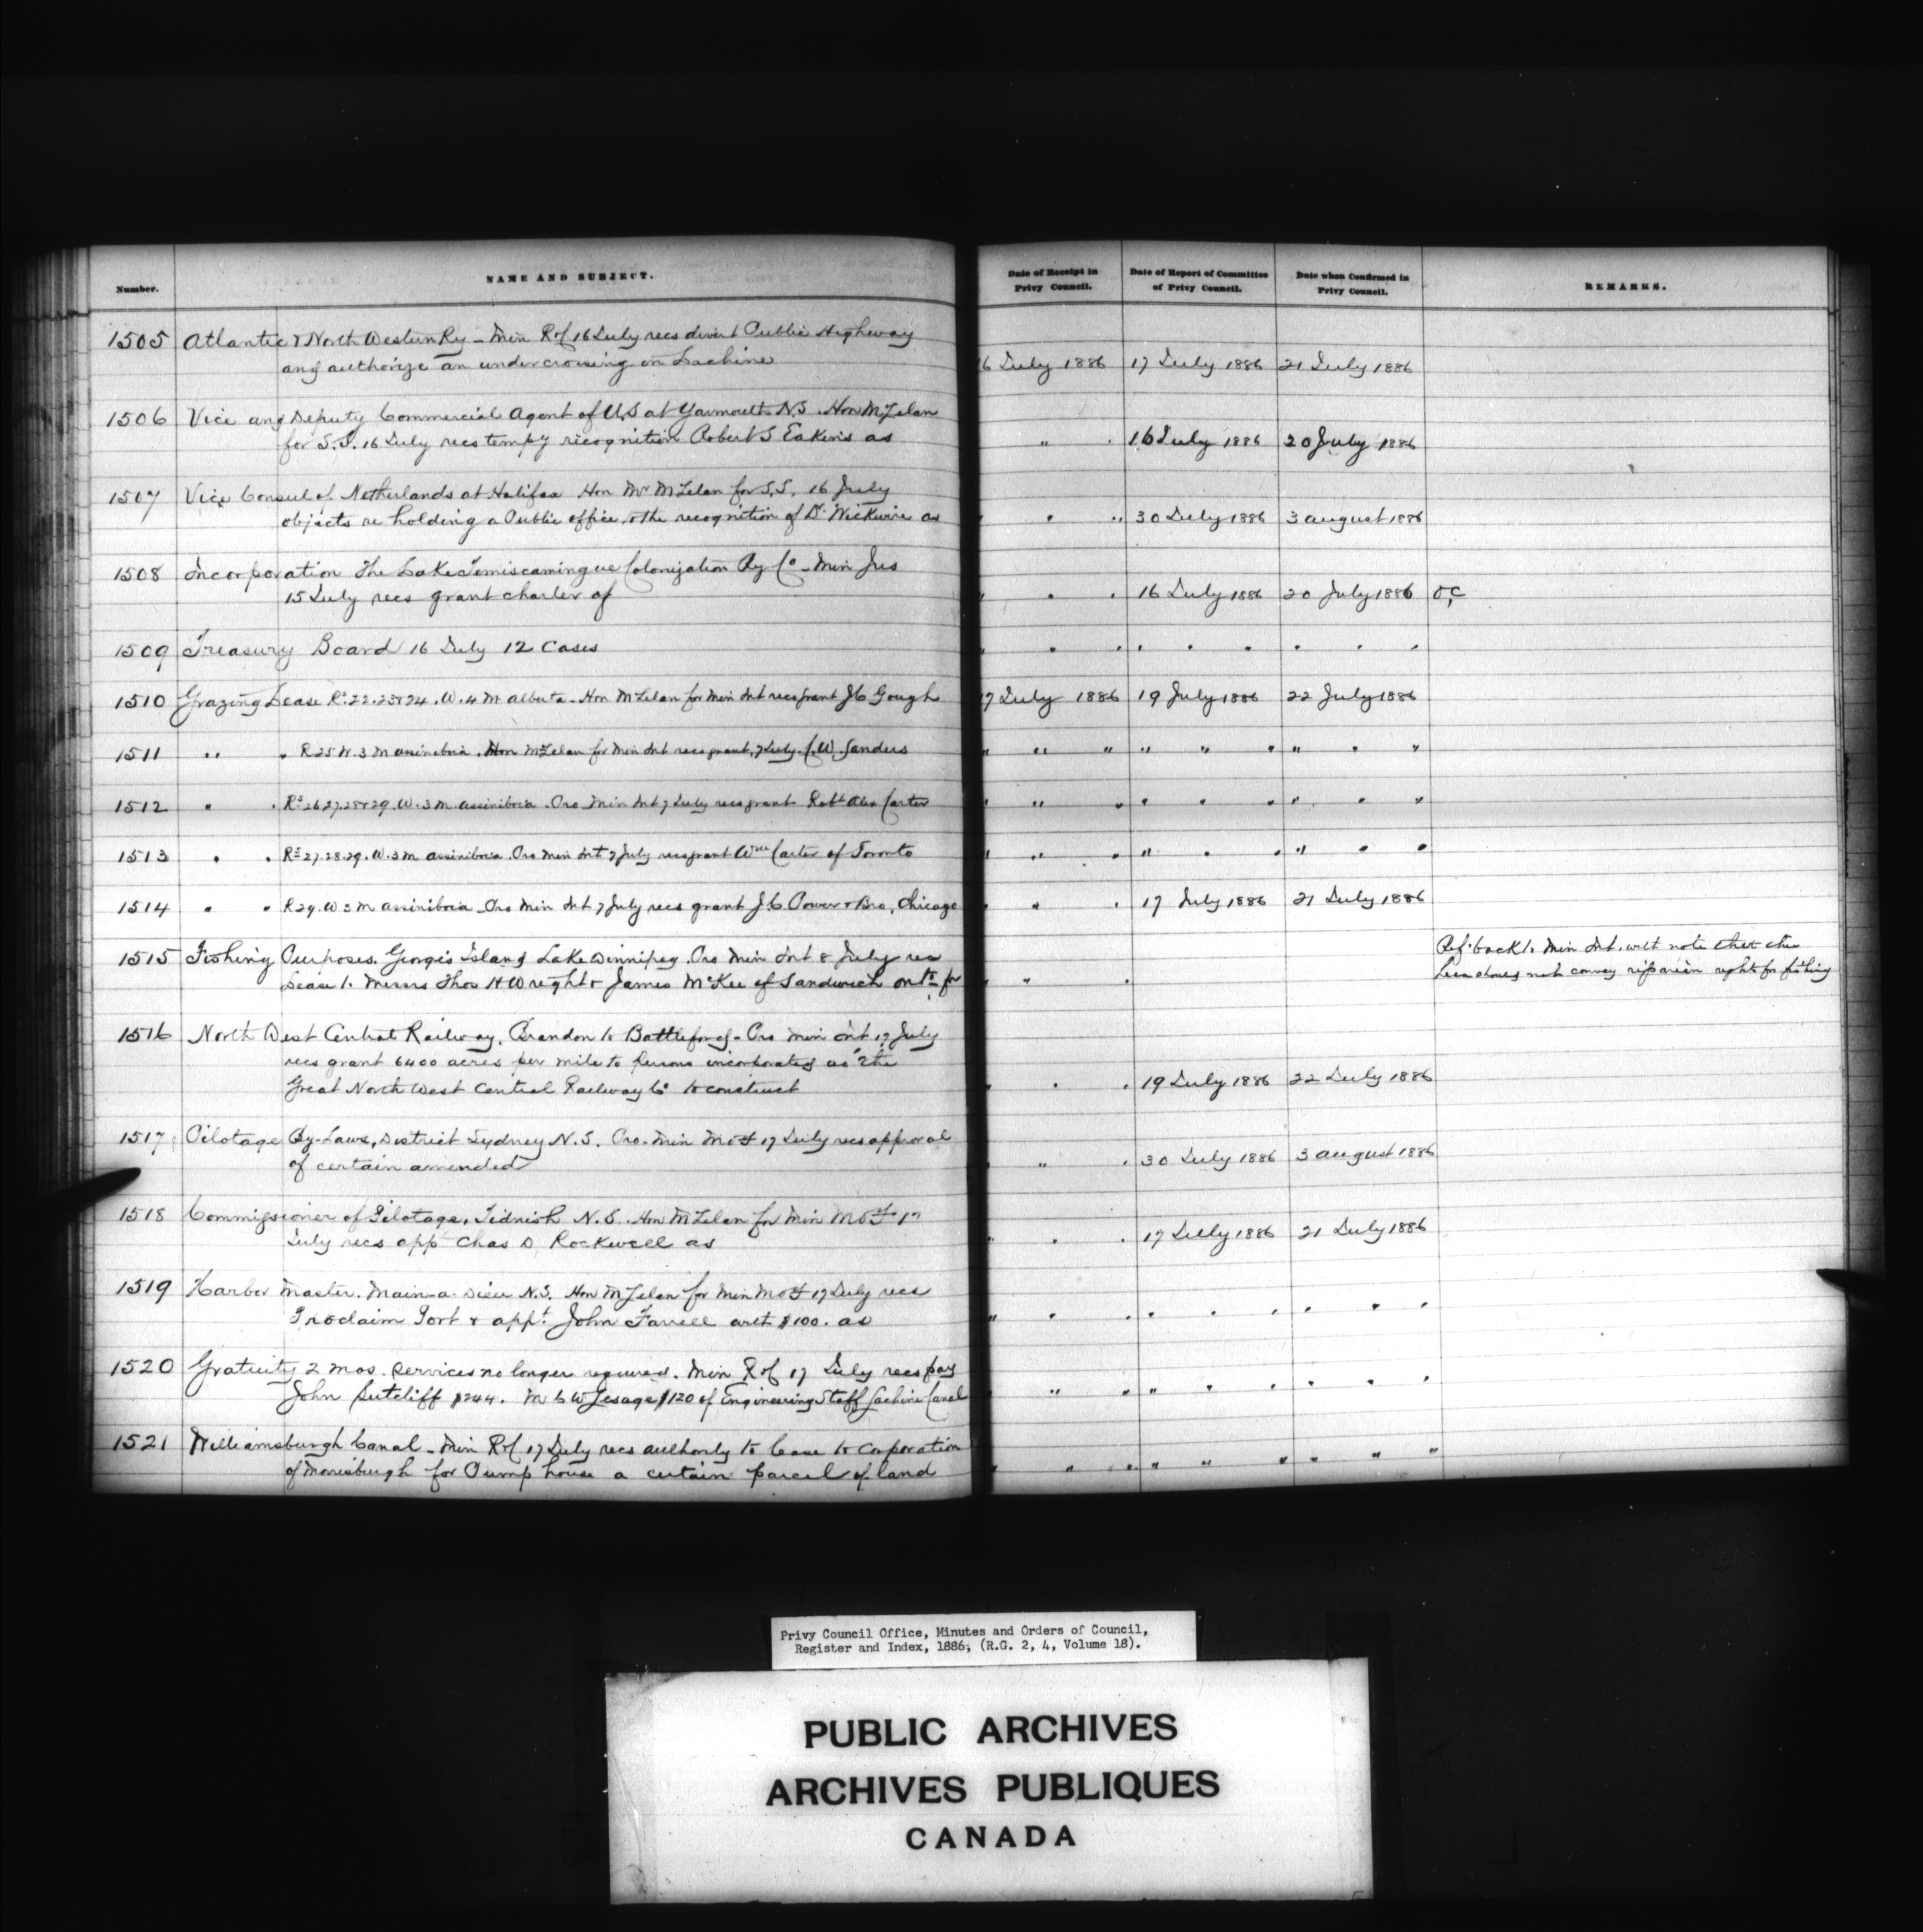 Number.
NAME AND SUBJECT.
Date of Receipt in Privy Council.
Date of Report of Committee of Privy Council.
Date when Confirmed in Privy Council.
REMARKS.
1505 Atlantic & North Western Ry – Min R of 16 July recs divert Public Highway
and authorize an undercrossing on Lachine
16 July 1886 17 July 1886 21 July 1886
1506 Vice and Deputy Commercial Agent of U.S at Yarmouth N.S. Hon McLelan
for S.S. 16 July recs tempy recognition Robert S Eakins as
" " 16 July 1886 20 July 1886
1507 Vice Consul of Netherlands at Halifax Hon Mr McLelan for S.S. 16 July
objects re holding a Public office to the recognition of Dr Wickwire as
" " " 30 July 1886 3 august 1886
1508 Incorporation The Lake Temiscamingue Colonization Ry Co – Min Jus
15 July recs grant charter of
" " " 16 July 1886 20 July 1886 O.C
1509 Treasury Board 16 July 12 Cases
" " " " " " " " "
1510 Grazing Lease Rs 22.23&24. W. 4 M Alberta – Hon McLelan for Min Int recs grant J C Gough
17 July 1886 19 July 1886 22 July 1886
1511 " " R 25 W. 3 M assiniboia. Hon McLelan for Min Int recs grant, 7 July. C. W. Sanders
" " " " " " " " "
1512 " " Rs 26.27.28&29. W. 3 M. assiniboia. Pro Min Int 7 July recs grant Robt Alex Carter
" " " " " " " " "
1513 " " Rs 27.28.29. W. 3 M assiniboia. Pro Min Int 7 July recs grant Wm Carter of Toronto
" " " " " " " " "
1514 " " R 29. W 3 M assiniboia – Pro Min Int 7 July recs grant J C Power & Bro, Chicago
" " " 17 July 1886 21 July 1886
1515 Fishing Purposes. George's Island Lake Winnipeg. Pro Min Int 8 July rec
Lease to Messrs Thos H Wright & James McKee of Sandwich Onto for
" " "
Ref. back to Min Int. with note that the
Lease should not convey riparian rights for fishing
1516 North West Central Railway. Brandon to Battleford – Pro Min Int 17 July
recs grant 6400 acres per mile to Persons incorporated as "the
Great North West Central Railway Co to construct
" " " 19 July 1886 22 July 1886
1517 Pilotage By-Laws, District Sydney N.S. Pro. Min M & F 17 July recs approval
of certain amended
" " " 30 July 1886 3 august 1886
1518 Commissioner of Pilotage, Tidnish N.S. Hon McLelan for Min M & F 17
July recs appt Chas D Rockwell as
" " " 17 July 1886 21 July 1886
1519 Harbor Master. Main-a-Dieu N.S. Hon McLelan for Min M & F 17 July recs
Proclaim Port & appt John Farrell with $100. as
" " " " " " " " "
1520 Gratuity 2 mos. Services no longer required. Min R of 17 July recs pay
John Sutcliff $244. M C W Lesage $120 of Engineering Staff Lachine Canal
" " " " " " " " "
1521 Williamsburgh Canal – Min R of 17 July recs authority to lease to Corporation
of Morrisburgh for Pump house a certain parcel of land
" " " " " " " " "
Privy Council Office, Minutes and Orders of Council,
Register and Index, 1886, (R.G. 2, 4, Volume 18).
PUBLIC ARCHIVES
ARCHIVES PUBLIQUES
CANADA